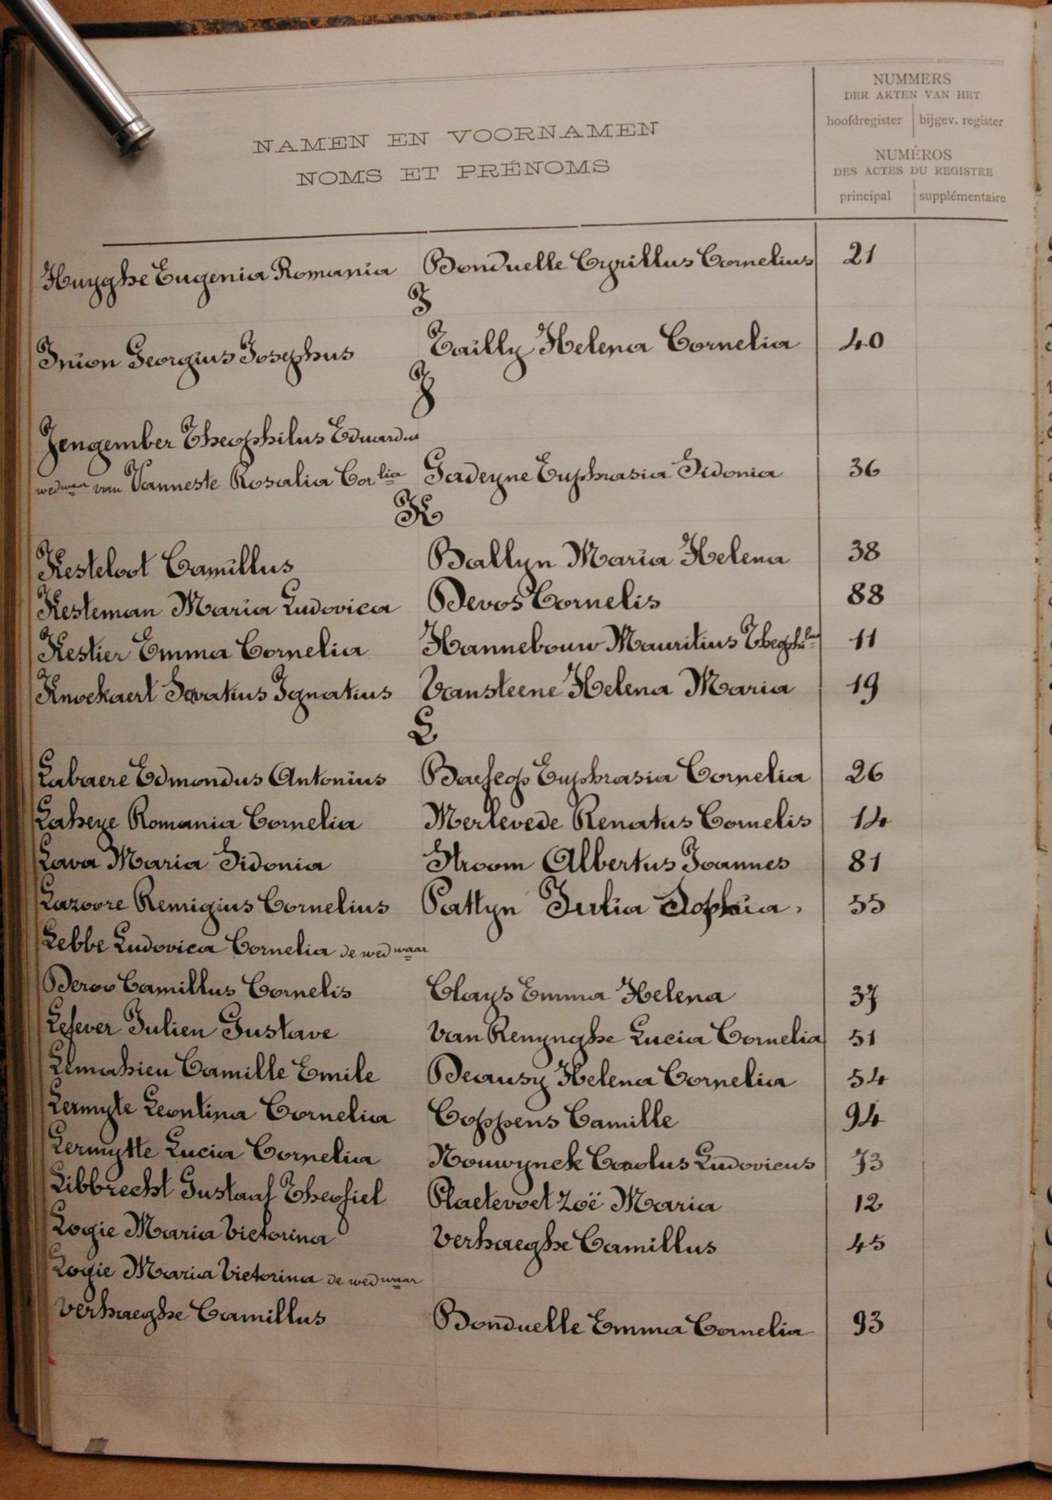 NAMEN EN VOORNAMEN
NOMS ET PRÉNOMS
NUMMERS
DER AKTEN VAN HET
hoofdregister bijgev. register
NUMÉROS
DES ACTES DU REGISTRE
principal supplémentaire
Huyghe Eugenia Romania Bonduelle Cyrillus Cornelius 21
I
Inion Georgius Josephus Tailly Helena Cornelia 40
J
Jengember Theophilus Eduardus
wedwaar van Vanneste Rosalia Corlia Gadeyne Euphrasia Sidonia 36
K
Kesteloot Camillus Ballyn Maria Helena 38
Kesteman Maria Ludovica Devos Cornelis 88
Kestier Emma Cornelia Hannebouw Mauritius 11
Knockaert Ignatius Vansteene Helena Maria 19
L
Labaere Edmondus Antonius Euphrasia Cornelia 26
Laheye Romania Cornelia Merlevede Renatus Cornelis 14
Lava Maria Sidonia Stroom Albertus Joannes 81
Lazoore Remigius Cornelius Pattyn Julia Sophia 55
Lebbe Ludovica Cornelia de wedwaar
Deroo Camillus Cornelis Clays Emma Helena 37
Lefever Julien Gustave Van Renynghe Lucia Cornelia 51
Lemahieu Camille Emile Deausy Helena Cornelia 54
Lermyte Leontina Cornelia Coppens Camille 94
Lermytte Lucia Cornelia Nouwynck Carolus Ludovicus 73
Libbrecht Gustaaf Theofiel Plaetevoet Zoë Maria 12
Logie Maria Victorina Verhaeghe Camillus 45
Logie Maria Victorina de wedwaar
Verhaeghe Camillus Bonduelle Emma Cornelia 93